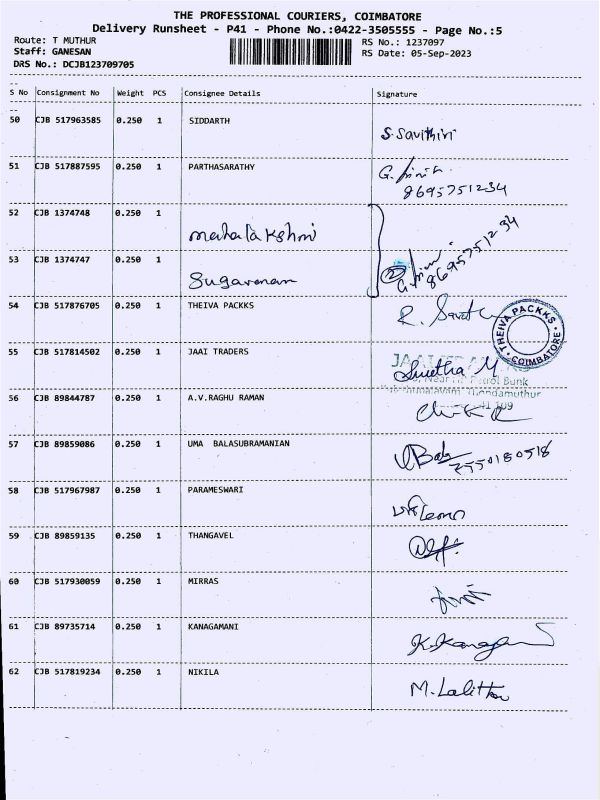 THE PROFESSIONAL COURIERS, COIMBATORE
Delivery Runsheet - P41 - Phone No.:0422-3505555 - Page No.:5
Route: T MUTHUR
RS No.: 1237097
Staff: GANESAN
RS Date: 05-Sep-2023
DRS No.: DCJB123709705
S No Consignment No Weight PCS Consignee Details Signature
50 CJB 517963585 0.250 1 SIDDARTH
S. Savithiri
51 CJB 517887595 0.250 1 PARTHASARATHY
8695751234
52 CJB 1374748 0.250 1
mahalakshmi
8695751234
53 CJB 1374747 0.250 1
2
Sugavanam
54 CJB 517876705 0.250 1 THEIVA PACKKS
THEIVA PACKKS
COIMBATORE
55 CJB 517814502 0.250 1 JAAI TRADERS
Swetha M
Petrol Bunk
Thondamuthur
56 CJB 89844787 0.250 1 A.V.RAGHU RAMAN
57 CJB 89859086 0.250 1 UMA BALASUBRAMANIAN
58 CJB 517967987 0.250 1 PARAMESWARI
59 CJB 89859135 0.250 1 THANGAVEL
60 CJB 517930059 0.250 1 MIRRAS
61 CJB 89735714 0.250 1 KANAGAMANI
62 CJB 517819234 0.250 1 NIKILA